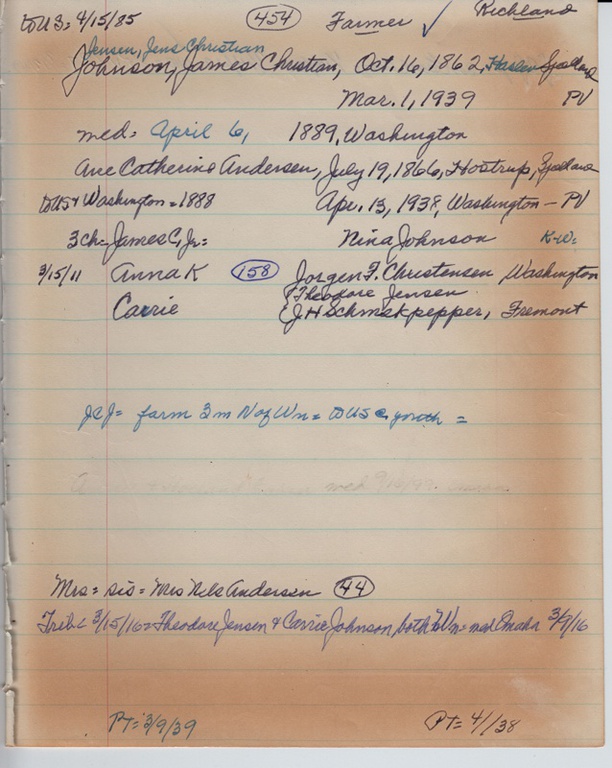 to US= 4/15/85 454 Farmer ✓ Richland
Jensen, Jens Christian
Johnson, James Christian, Oct. 16, 1862, Haslev Sjælland
Mar. 1, 1939 PV
med= April 6, 1889, Washington
Ane Catherine Andersen, July 19, 1866, Hostrup, Sjælland
to US & Washington = 1888 Apr. 13, 1938, Washington - PV
3 ch= James C, Jr= Nina Johnson K-W=
3/15/11 Anna K 158 Jorgen F. Christensen Washington
Carrie { Theodore Jensen
{ J H Schmekpepper, Fremont
JCJ= farm 3 m N of Wn= to US @ youth =
Mrs= sis= Mrs Nels Andersen 44
Trib= 3/15/16= Theodore Jensen & Carrie Johnson, both Wn= med Omaha 3/9/16
PT= 3/9/39 PT= 4/ /38